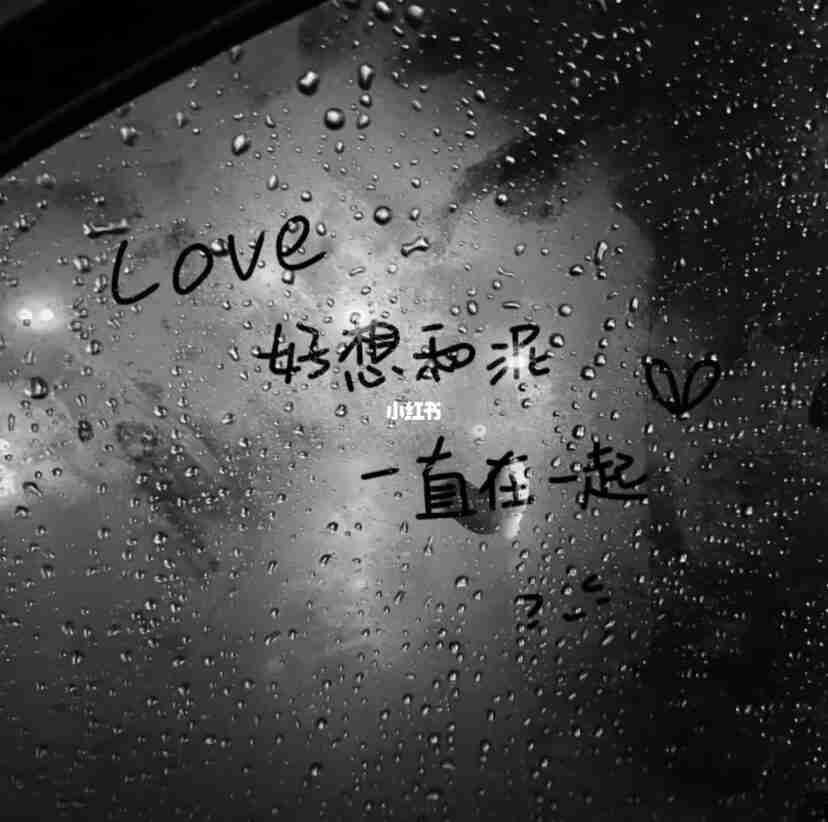 Love
好想和泥
小红书
一直在一起